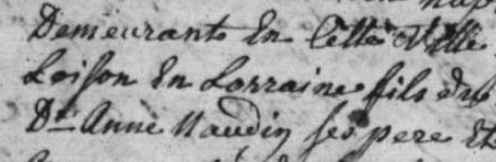 Demeurants En Cette Ville
Loison En Lorraine fils du
Dt. Anne Naudin ses pere Et